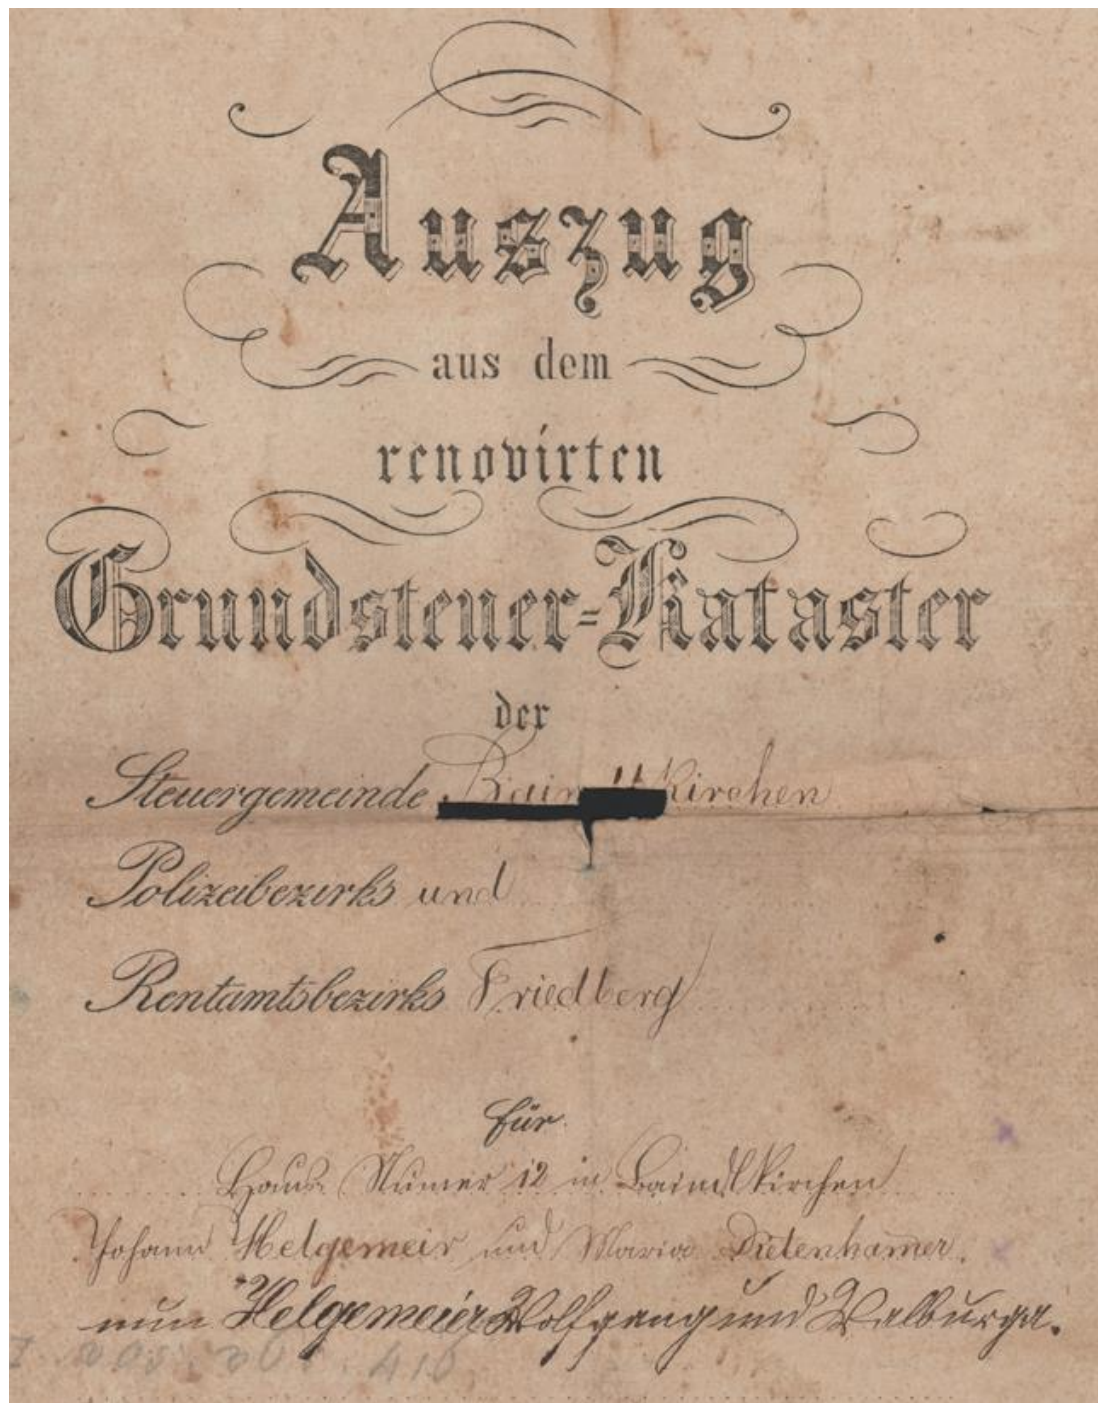 Auszug
aus dem
renovirten
Grundsteuer=Kataster
der
Steuergemeinde kirchen
Polizeibezirks und
Rentamtsbezirks Friedberg
für
Haus Numer 12 in Baindlkirchen
Johann Helgemeir und Maria Dietenhamer.
nun Helgemeier Wolfgang und Walburga.